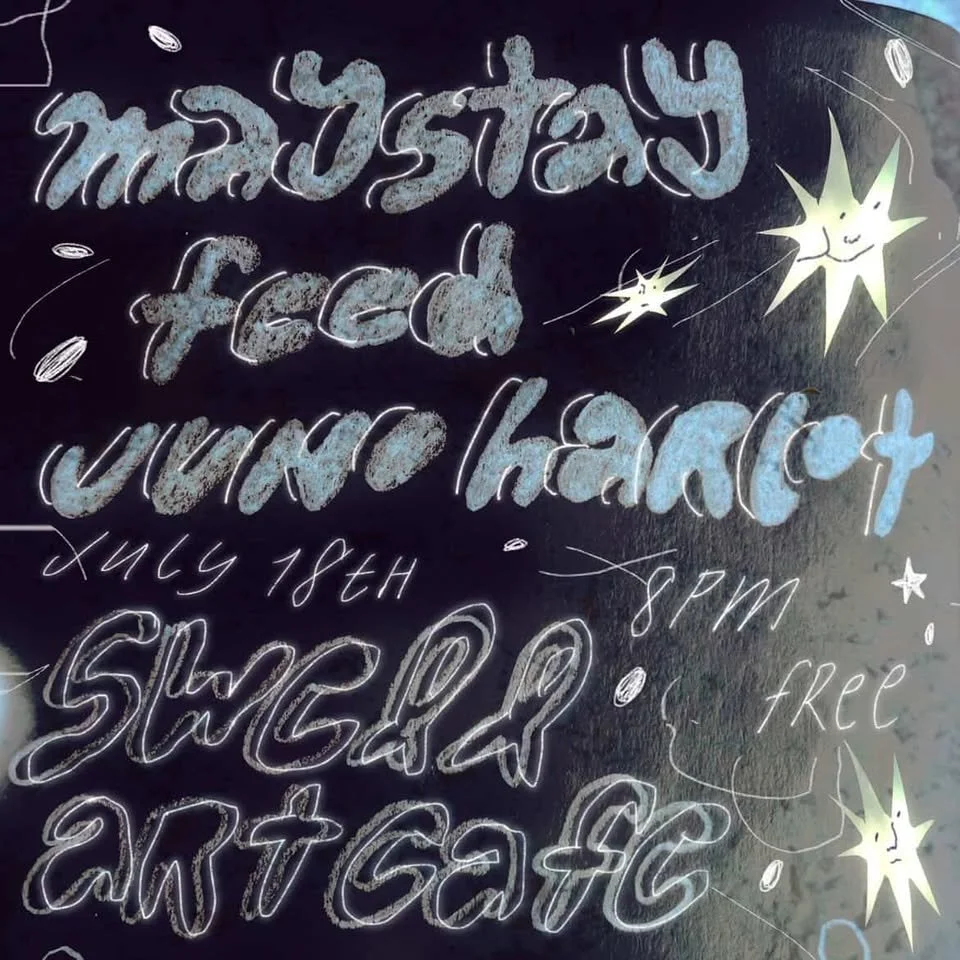 maystay
feed
JUNO haRlot
JULY 18tH 8PM
SWeRR
fRee
aRtCafe